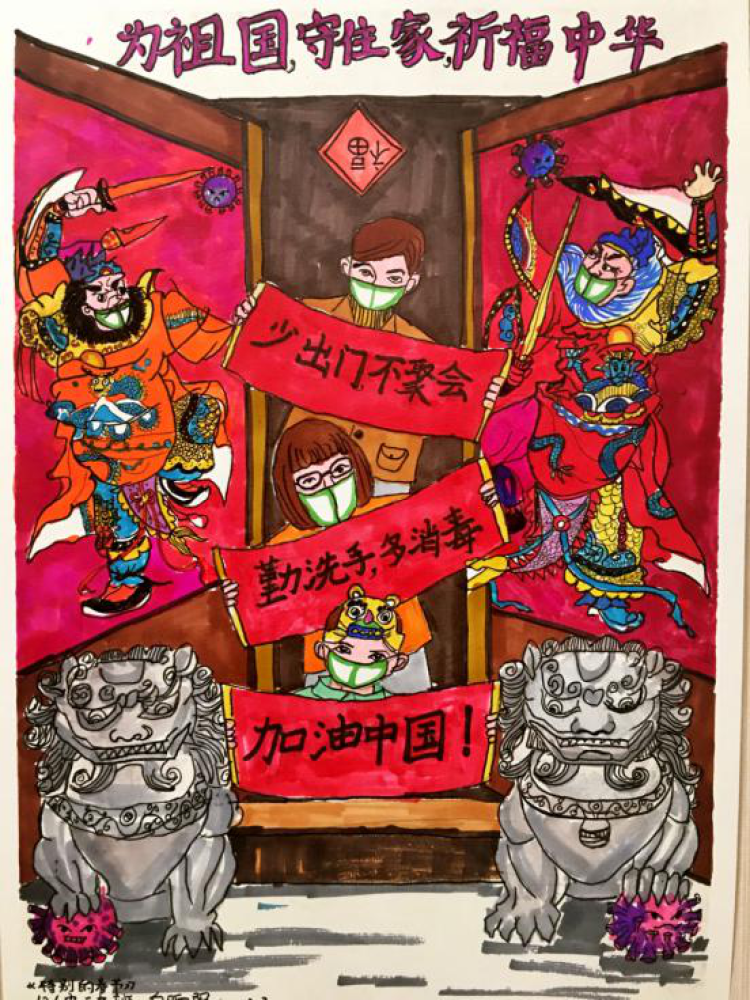 为祖国,守住家,祈福中华
福
少出门,不聚会
勤洗手,多消毒
加油中国!
《特别的春节》